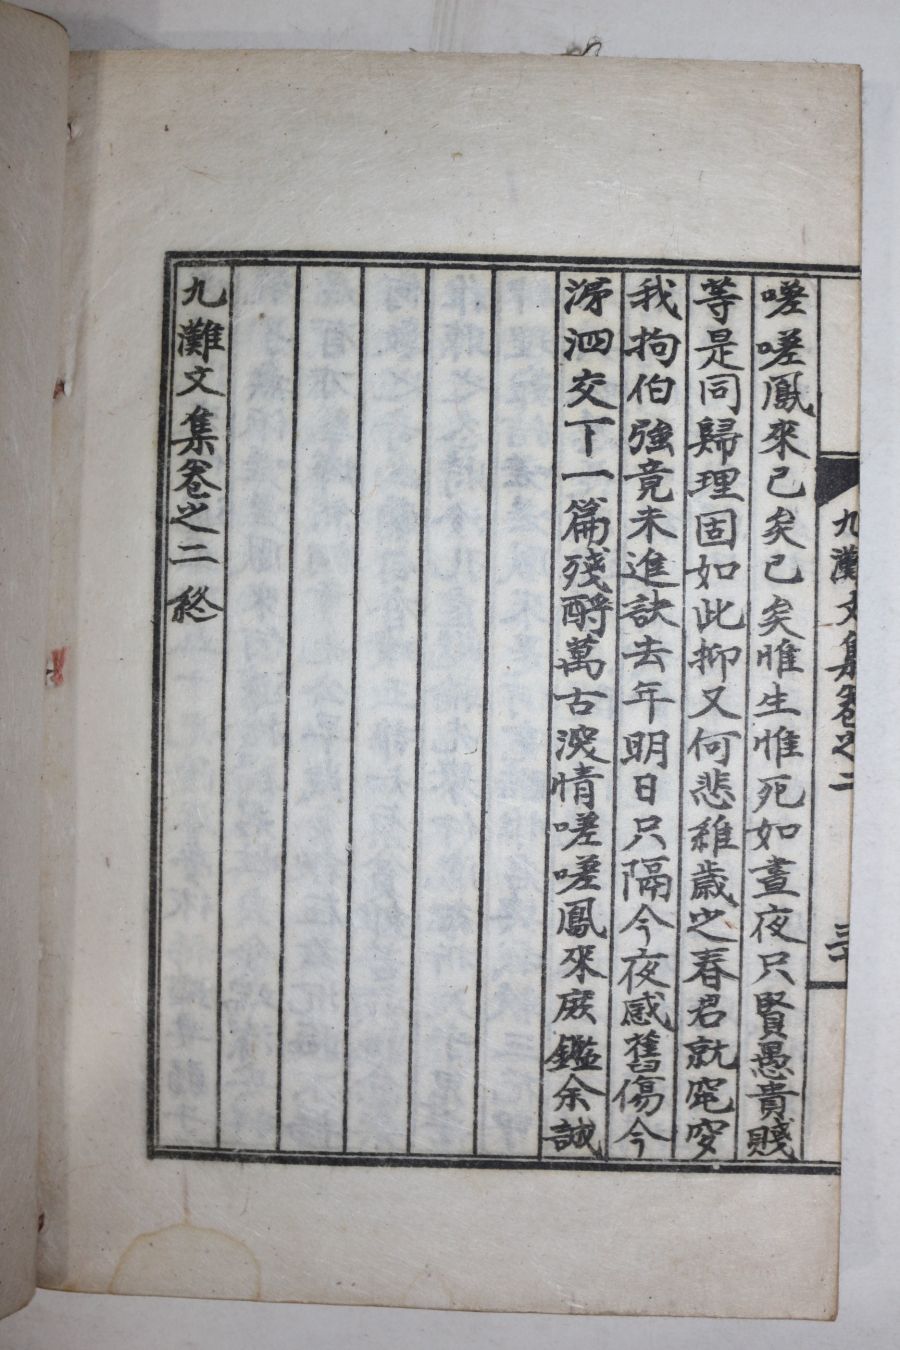 九灘文集卷之二
嗟嗟鳳來已矣已矣惟生惟死如晝夜只賢愚貴賤
等是同歸理固如此抑又何悲維歲之春君就窀穸
我拘伯強竟未進訣去年明日只隔今夜感舊傷今
涕泗交下一篇殘酹萬古深情嗟嗟鳳來庶鑑余誠
九灘文集卷之二 終